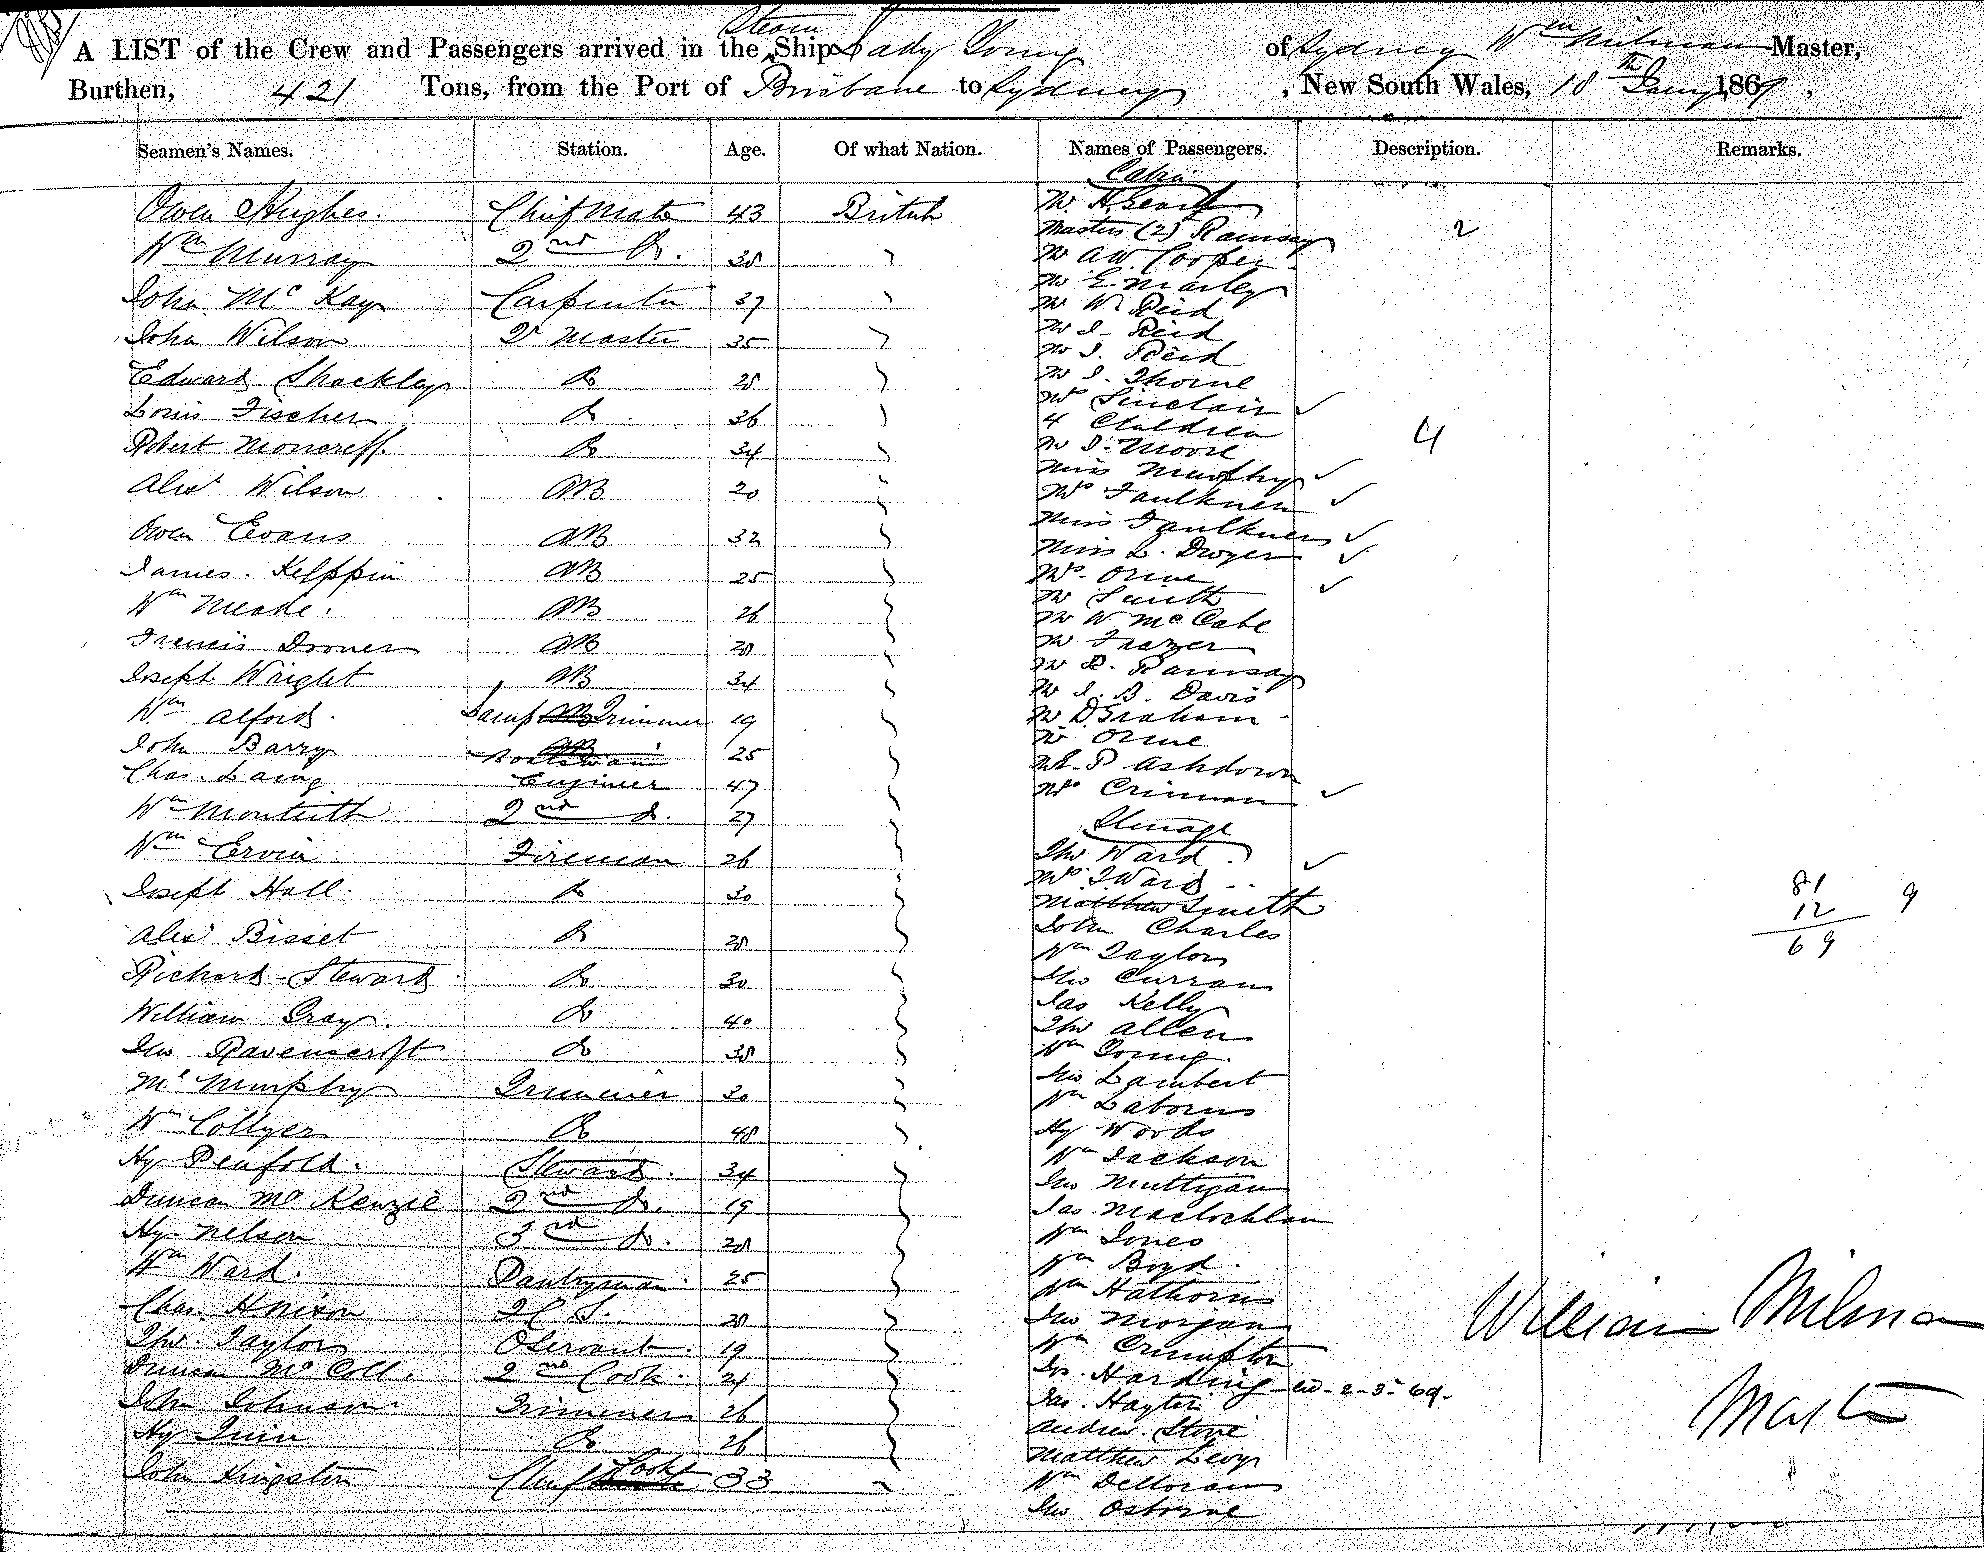 A LIST of the Crew and Passengers arrived in the Steam Ship Lady Young of Sydney Wm Milman Master,
Burthen, 421 Tons, from the Port of Brisbane to Sydney, New South Wales, 18th Jany 1869.
Seamen's Names. Station. Age. Of what Nation. Names of Passengers. Description. Remarks.
Cabin
Owen Hughes. Chief Mate 43 British
Mr H.
Masters (2) Ramsay 2
Wm Murray 2nd Do. 38
Mr A W. Cooper
Mr E. Marley
John McKay Carpenter 37
Mr W. Reid
John Wilson Qr Master 35
Mr J. Reid
Mr J. Reid
Edward Shockley Do 28
Mr J. Thorne
Mrs Sinclair ✓
Louis Fischer do. 36
4 Children 4
Robert Moncreff. Do 34
Mr J. Moore
Miss Murphy ✓
Alexr Wilson AB 20
Mrs Faulkner ✓
Miss Faulkner ✓
Owen Evans AB 32
Miss L. Dwyer ✓
James. AB 25
Mrs. Orme ✓
Mr Smith
Wm Meade. AB 26
Mr W McCabe
Francis AB 28
Mr Frazer
Mr R. Ramsay
Joseph Wright AB 34
Mr J. B. Davis
Wm Alford. Lamp Trimmer 19
Mr D. Graham
Mr Orme
John Barry AB 25
Mr. P Ashdown
Chas. Laing Engineer 47
Mrs Crinnan ✓
Wm Monteith 2nd do. 27
Steerage
Wm Ervin Fireman 26
Thos Ward. ✓
Mrs T. Ward
Joseph Hall. Do 30
81
12 9
69
Matthew Smith
John Charles
Alexr Bisset Do 28
Wm Taylor
Richard Stewart Do 30
Jno Curran
Jas Kelly
William Gray. Do 40
Thos Allen
Jno Ravenscroft do 38
Wm Young.
Jno Lambert
Ml Murphy Trimmer 30
Wm Laborns
Wm Collyer Do 48
Hy Woods
Hy Penfold. Steward. 34
Wm Jackson
Jno
Duncan McKenzie 2nd do. 19
Jas Maclochlan
Hy Nelson 3rd do. 28
Wm Jones
Wm Boyd.
Wm Ward. Pantryman. 25
Wm Hathorn
Chas. H Nixon 28
Jno Morgan
Thos. Taylor OServant. 19
Wm Crumpton
William Milman
Duncan McColl. 2nd Cook. 21
Harding 2-3-69.
Jas. Hayter
Master
John Johnson. Trimmer 26
Andrew Stone
Hy Do 26
Matthew Levy
John Kingston Chief Cook 33
Wm
Jno Osborne